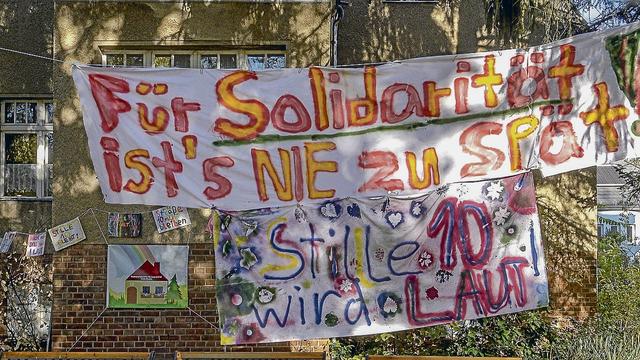 Für Solidarität
ist's NIE zu spät
Stille 10
wird LAUT!
STILLE